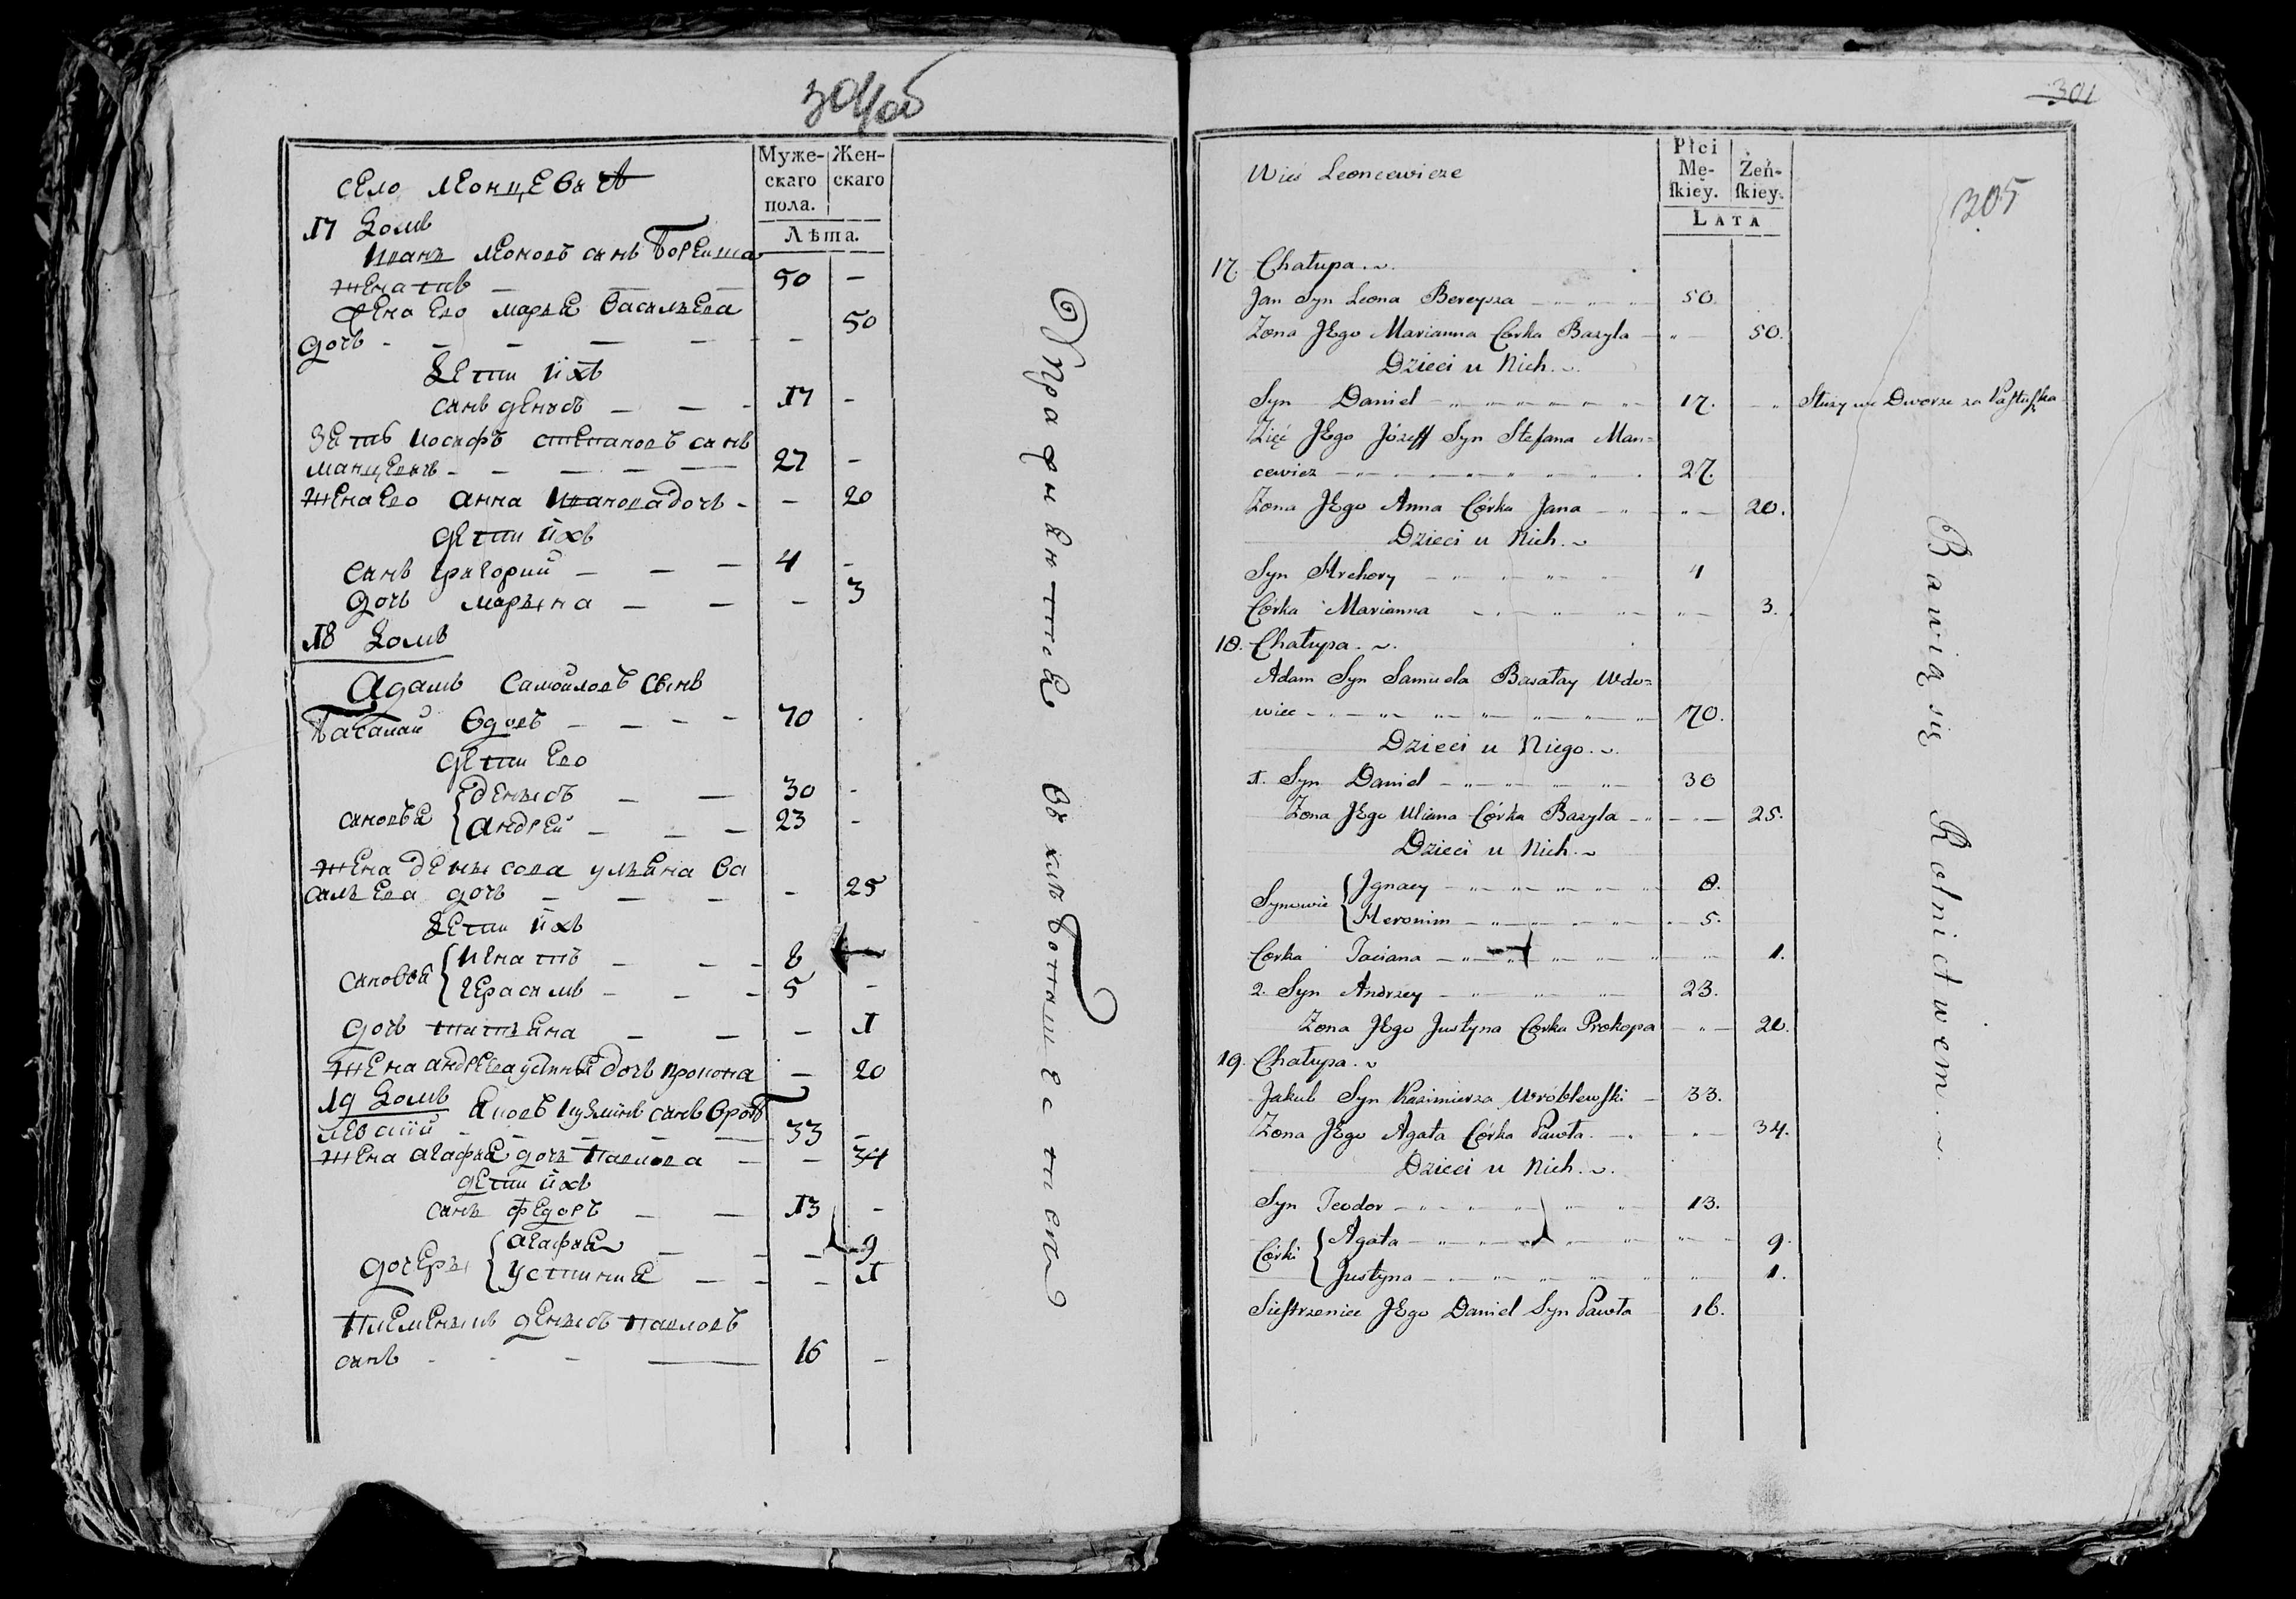 304об
Муже-
скаго
пола.
Жен-
скаго
Лѣта.
село Леонцевичѣ
17 Домъ
Иванъ Леоновъ синъ Борейша
женатъ — 50 —
жена его марья Васильева
дочь - — — — — 50
Дети ихъ
синъ денисъ — — - 17 -
Зеть иосифъ степановъ синъ
манцевичъ - — — — 27 —
жена его анна Иванова дочь - — 20
дети ихъ
синъ григорий — — — 4 -
дочь марьяна — — — 3
18 Домъ
Адамъ Самойловъ Синъ
Басалай Вдовъ — — - - 70 .
дети его
синовья
денисъ — — 30 -
Андрей — — — 23 -
жена денисова ульяна Ва
сильева дочь — — — - 25
Дети ихъ
синовья
игнатъ — - - 8 —
герасимъ — - - 5 -
дочь татьяна — — — 1
жена андреева устинья дочь прокопа — 20
19 Домъ Яковъ кузминъ синъ Вроб
левский — 33 —
жена агафия дочь павлова — — 34
дети ихъ
синъ федоръ — — 13 -
дочеры
агафия — - — 9
устиния — - - 1
племеникъ денисъ павловъ
синъ - - - — 16 —
Упражнентся въ хлѣбопашестве
301
305
Płci
Mę-
ſkiey.
Żeń-
ſkiey.
LATA
Wieś Leoncewicze
17. Chałupa.
Jan Syn Leona Bereysza — 50.
Żona JEgo Marianna Corka Bazyla — 50.
Dzieci u Nich.
Syn Daniel — 17. Służy we Dworze za Paſtuſzka
Zięć JEgo Józeff Syn Stefana Man=
cewicz — 27.
Żona JEgo Anna Córka Jana — 20.
Dzieci u Nich.
Syn Hrehory — 4
Córka Marianna — 3.
18. Chałupa.
Adam Syn Samuela Basałay Wdo=
wiec — 70.
Dzieci u Niego.
1. Syn Daniel — 30
Żona JEgo Uliana Córka Bazyla — 25.
Dzieci u Nich.
Synowie
Jgnacy — 8.
Heronim — 5.
Corka Taciana — 1.
2. Syn Andrzey — 23.
Żona JEgo Justyna Corka Prokopa — 20.
19. Chałupa.
Jakub Syn Kazimierza Wróblewſki — 33.
Żona JEgo Agata Córka Pawła — 34.
Dzieci u Nich.
Syn Teodor — 13.
Córki
Agata — 9.
Justyna — 1.
Sieſtrzeniec JEgo Daniel Syn Pawła 16.
Bawią się Rolnictwem.